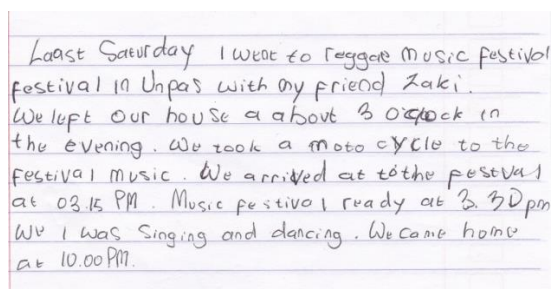 Laast Saturday I went to reggae music festival
festival in Unpas with my friend Zaki.
We left our house a about 3 o'clock in
the evening. We took a moto cycle to the
festival music. We arrived at tothe festval
at 03.15 PM. Music festival ready at 3.30 pm
We I was singing and dancing. We came home
at 10.00 PM.